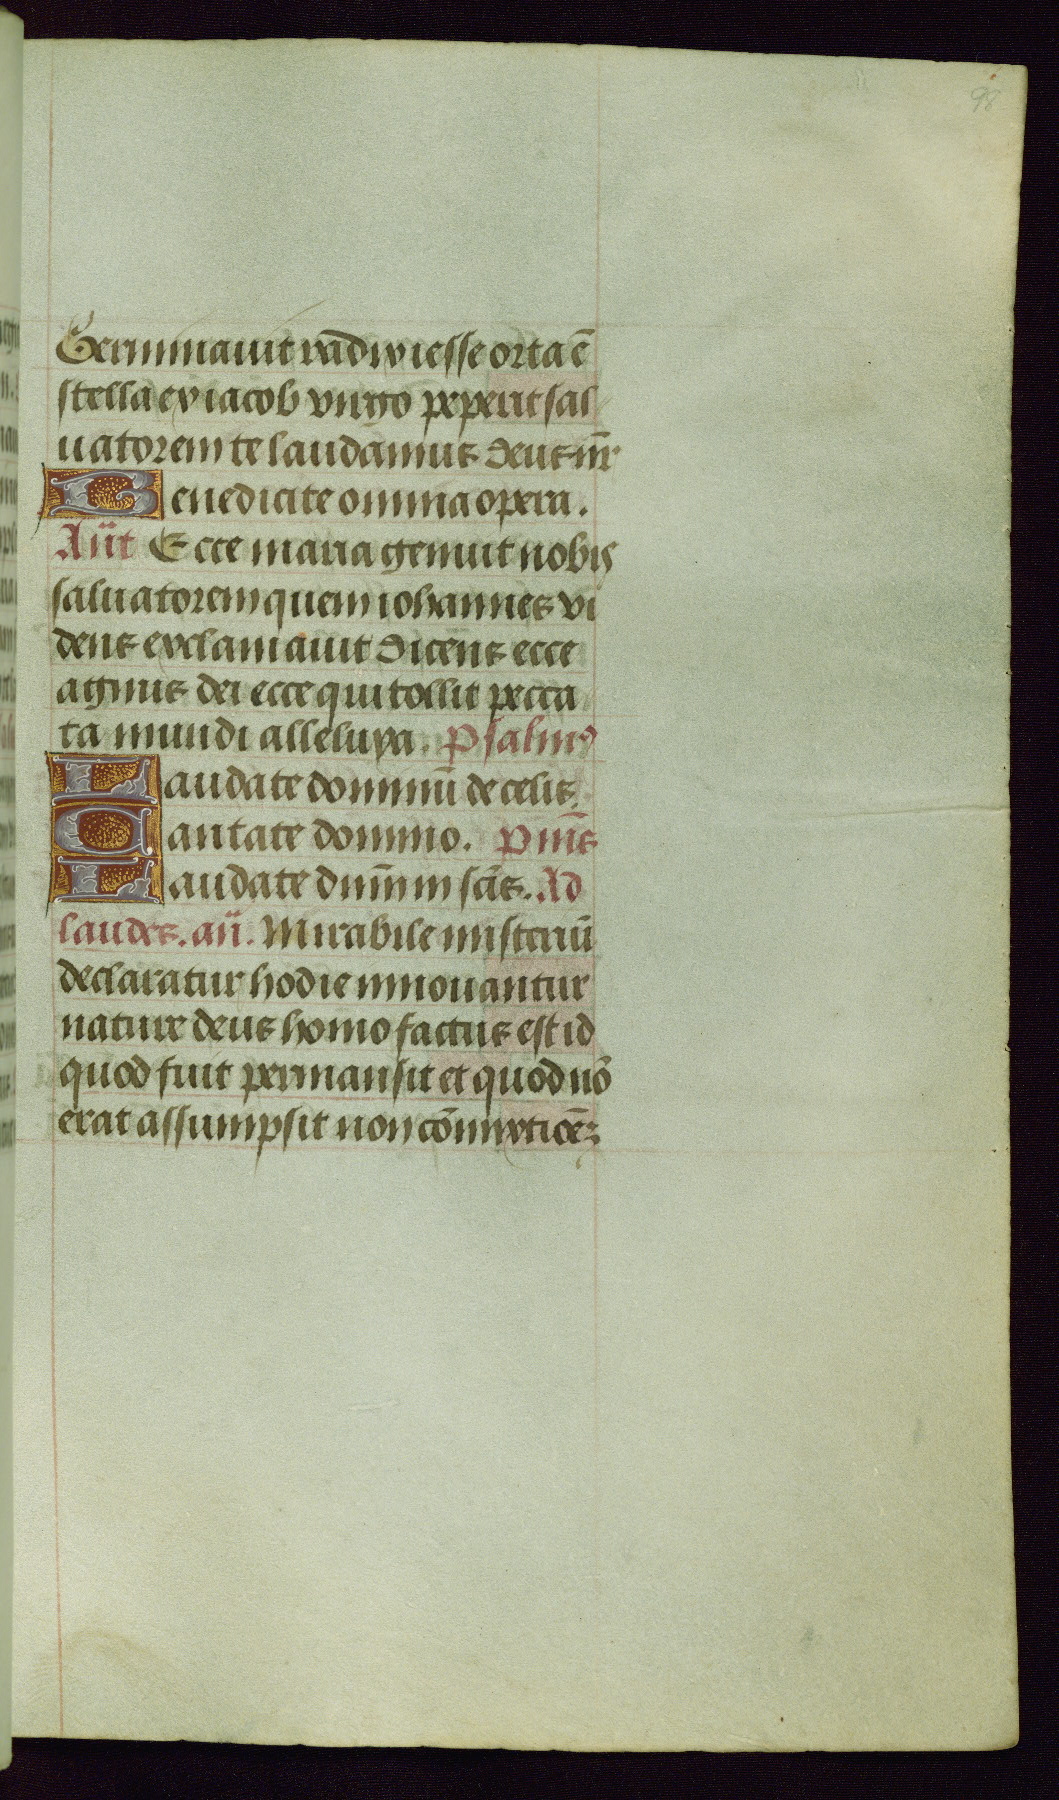 98
Germinauit radix iesse orta ē
stella ex iacob virgo peperit sal
uatorem te laudamus deus nr̄
Benedicite omnia opera.
An̄t Ecce maria genuit nobis
saluatorem quem iohannes vi
dens exclamauit dicens ecce
agnus dei ecce qui tollit pecca
ta mundi alleluya. Psalmꝰ
Laudate dominū de celis.
Cantate domino. Psm̄s
Laudate dn̄m in sc̄is. Ad
laudes. an̄. Mirabile misteriū
declaratur hodie innouantur
nature deus homo factus est id
quod fuit permansit et quod nō
erat assumpsit non cōmixtioēꝫ